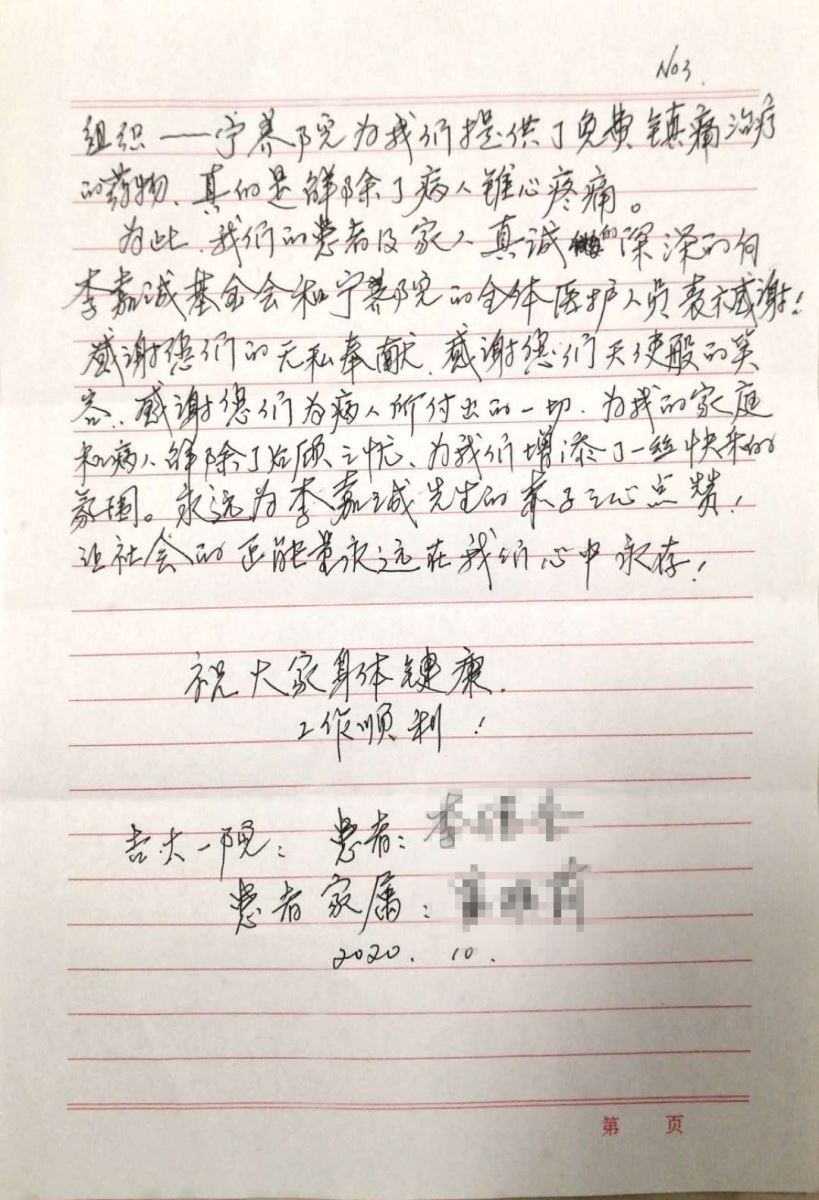 No3.
组织——宁养院为我们提供了免费镇痛治疗
的药物、真的是解除了病人锥心疼痛。
为此、我们的患者及家人真诚的深深的向
李嘉诚基金会和宁养院的全体医护人员表示感谢!
感谢您们的无私奉献、感谢您们天使般的笑
容、感谢您们为病人所付出的一切、为我的家庭
和病人解除了后顾之忧、为我们增添了一丝快乐的
氛围。永远为李嘉诚先生的赤子之心点赞!
让社会的正能量永远在我们心中永存!
祝大家身体健康、
工作顺利!
吉大一院: 患者:
患者家属:
2020. 10.
第 页